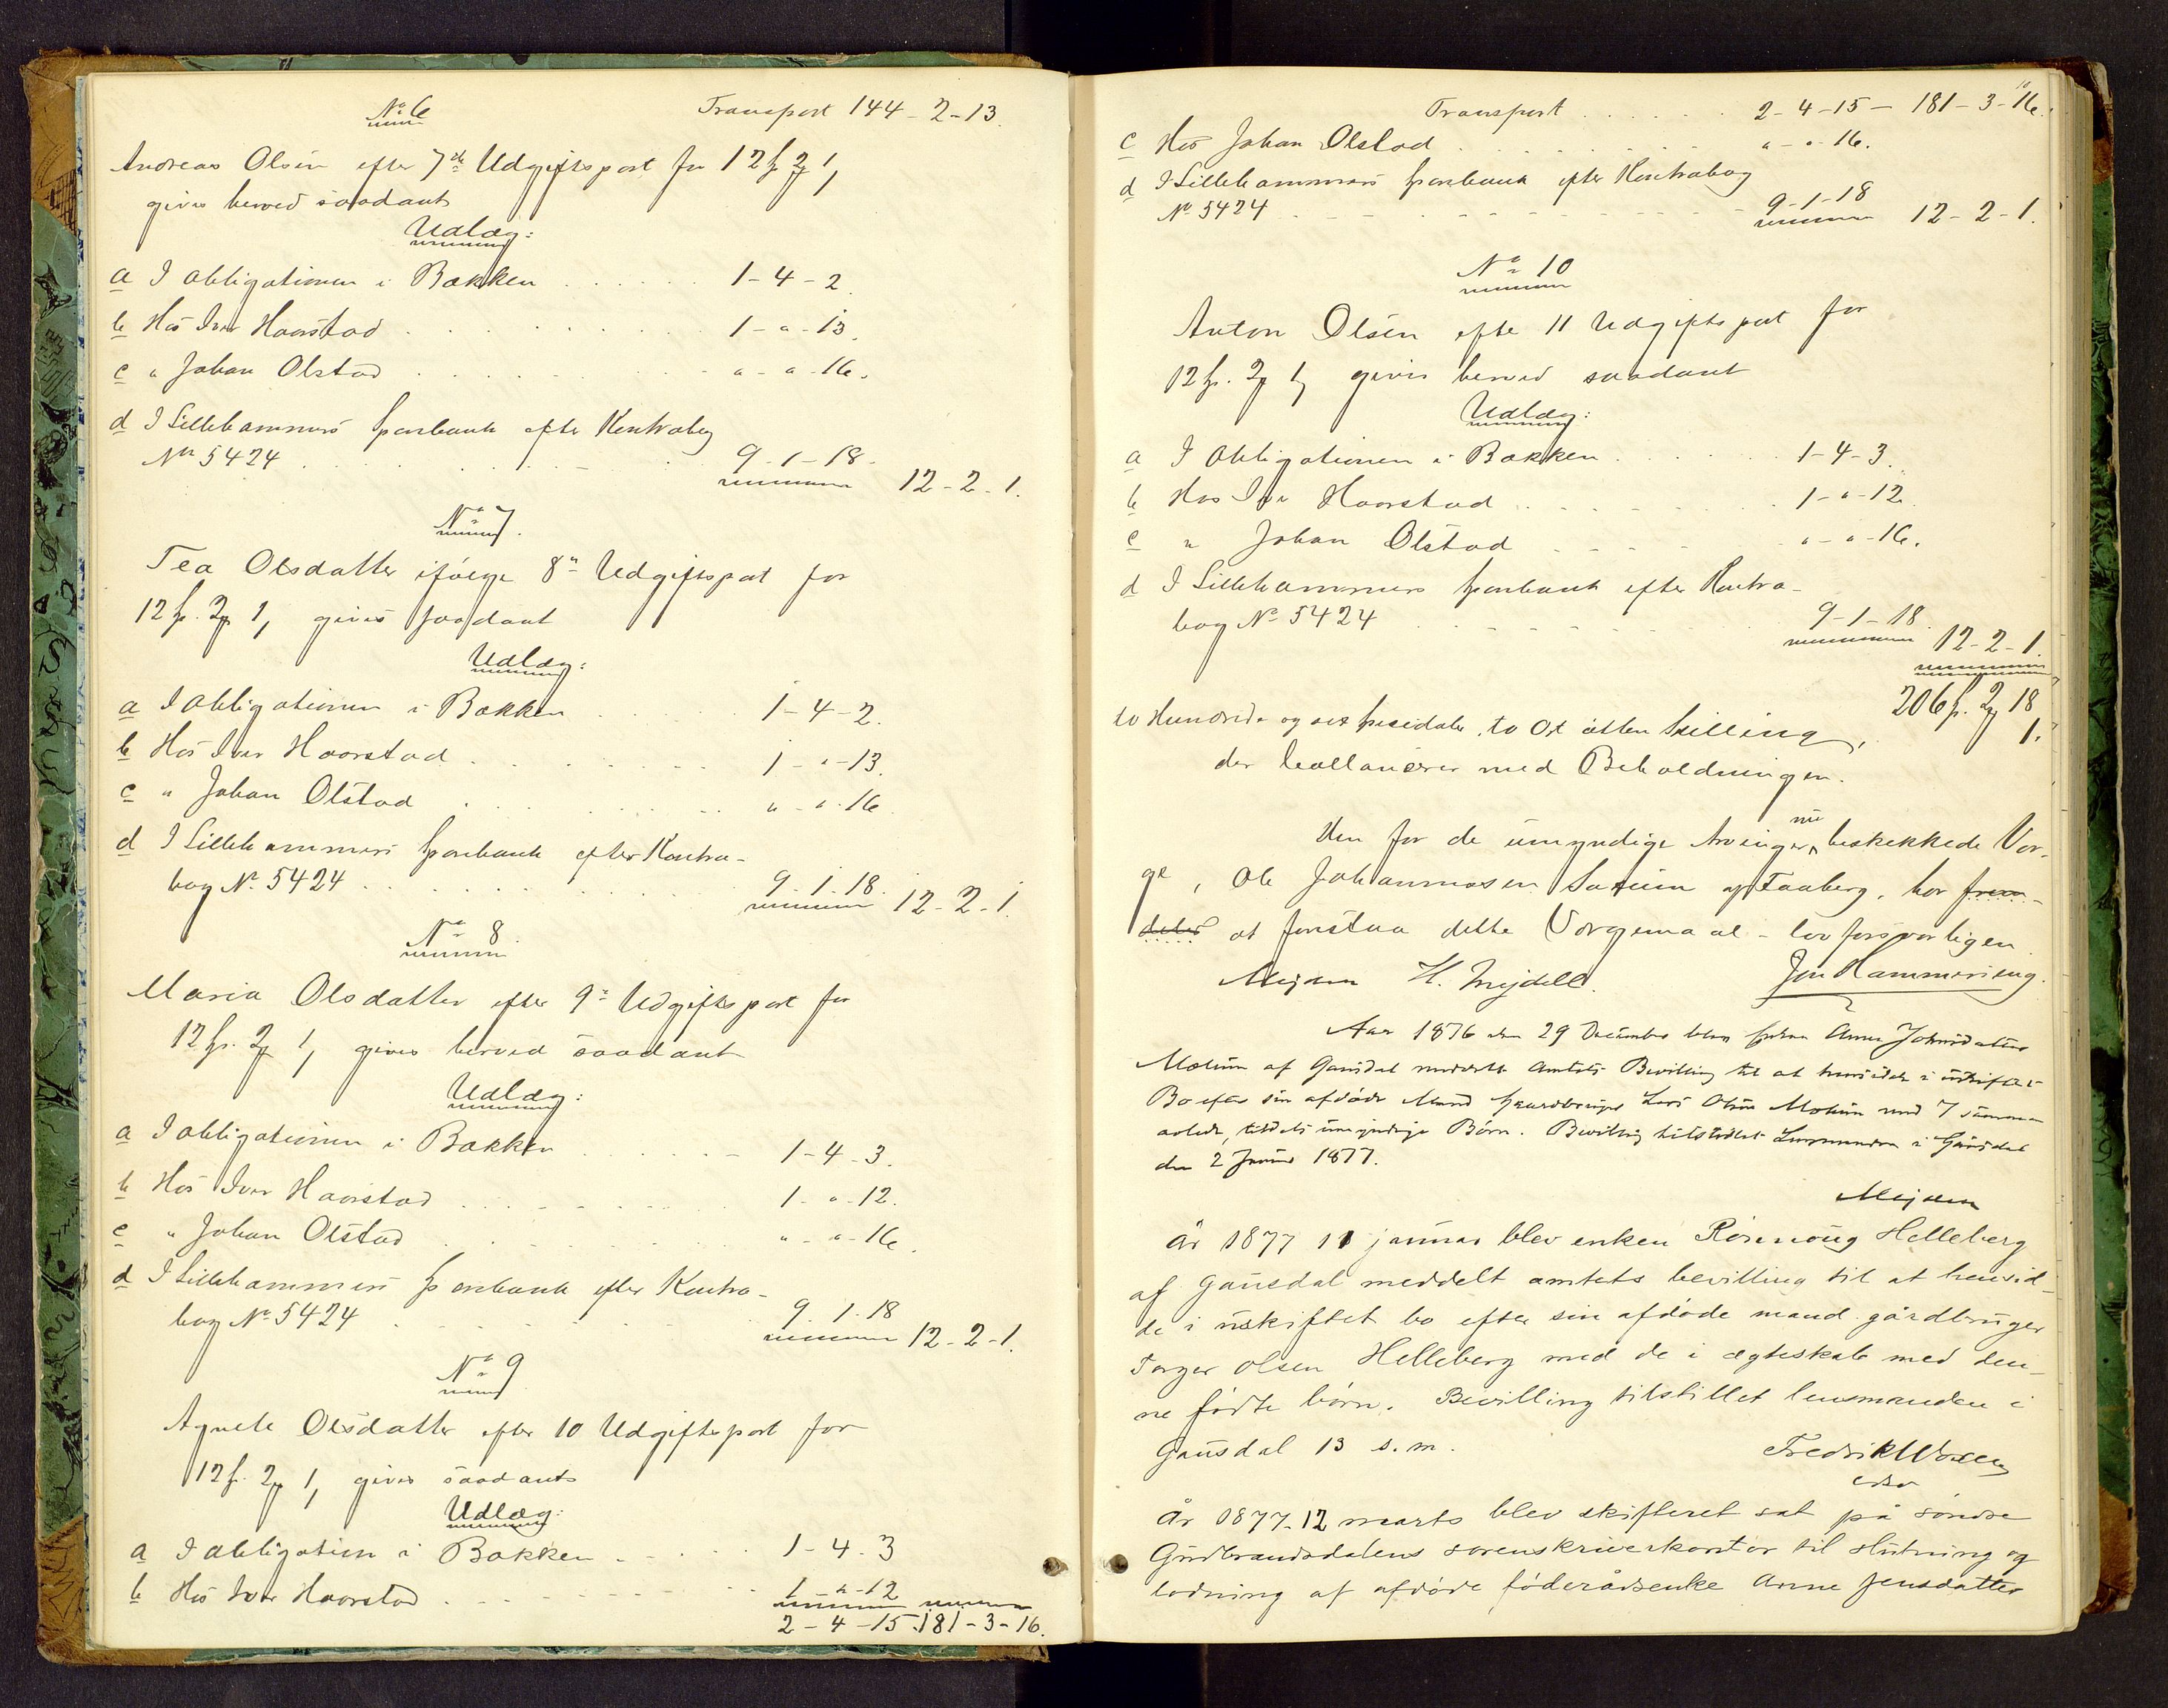 No 6 Transport 144-2-13.
Andreas Olsen efter 7de Udgiftspost for 12 2 1,
gives herved saadant
Udlæg:
a I obligationen i Bakken 1-4-2.
b Hos Iver Haarstad 1-"-13.
c " Johan Olstad "-"-16.
d I Lillehammers Sparbank efter Kontrabog
No 5424 9-1-18. 12-2-1.
No 7.
Tea Olsdatter ifølge 8" Udgiftspost for
12 2 1, gives saadant
Udlæg:
a I obligationen i Bakken 1-4-2.
b Hos Iver Haarstad 1-"-13.
c " Johan Olstad "-"-16
d I Lillehammers Sparbank efter Kontra-
bog No 5424 9-1-18. 12-2-1.
No 8
Maria Olsdatter efter 9" Udgiftspost for
12 2 1, gives herved saadant
Udlæg:
a I obligationen i Bakken 1-4-3.
b Hos Iver Haarstad 1-"-12.
c " Johan Olstad "-"-16.
d I Lillehammers Sparbank efter Kontra-
bog No 5424 9-1-18 12-2-1.
No 9
Agnete Olsdatter efter 10 Udgiftspost for
12 2 1, gives saadant
Udlæg:
a I obligation i Bakken 1-4-3
b Hos Iver Haarstad 1-"-12
2-4-15. 181-3-16.
10
Transport 2-4-15- 181-3-16.
c Hos Johan Olstad "-"-16.
d I Lillehammers Sparbank efter Kontrabog
No 5424 9-1-18 12-2-1.
No 10
Anton Olsen efte 11 Udgiftspost for
12 2 1, gives herved saadant
Udlæg:
a I Obligationen i Bakken 1-4-3.
b Hos Iver Haarstad 1-"-12
c " Johan Olstad "-"-16.
d I Lillehammers Sparbank efter Kontra-
bog No 5424 9-1-18. 12-2-1.
206 2 18
to Hundrede og sex Speciedaler, to Ort atten Skilling,
der ballancerer med Beholdningen.
Den for de umyndige Arvinger nu beskikkede Vær-
ge, Ole Johannesen af Faaberg, har
at forestaa dette Værgemaal lovforsvarligen
Mejdell. Jon Hammering.
Aar 1876 den 29 December blev Enken Anne Johnsdatter
af Gausdal meddelt Amtets Bevilling til at hensidde i uskiftet
Bo efter sin afdøde Mand Gaardbruger Lars Olsen med 7 sammen
avlede, tildels umyndige Børn. Bevilling tilstillet Lensmanden i Gausdal
den 2 Januar 1877.
År 1877 11 januar blev enken Rønnoug Helleberg
af Gausdal meddelt amtets bevilling til at hensid-
de i uskiftet bo efter sin afdøde mand gårdbruger
Torger Olsen Helleberg med de i ægteskab med den-
ne fødte børn. Bevilling tilstillet lensmanden i
Gausdal 13 s.m. Fredrik
År 1877. 12 marts blev skifteret sat på søndre
Gudbrandsdalens sorenskriverkontor til slutning og
lodning af afdøde føderådsenke Anne Jensdatter